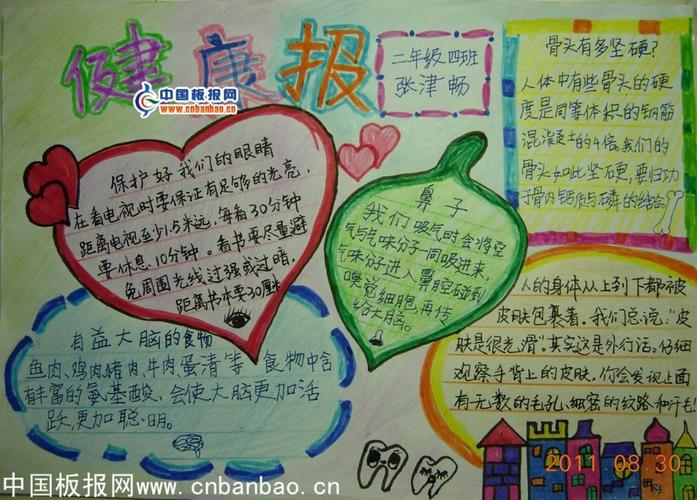 健康报
中国板报网
www.cnbanbao.com
二年级四班
张津畅
骨头有多坚硬?
人体中有些骨头的硬
度是同等体积的钢筋
混凝土的4倍,我们的
骨头如此坚硬,要归功
于骨内钙质与磷的结合
保护好我们的眼睛
在看电视时要保证有足够的光亮,
距离电视至少1.5米远,每看30分钟
要休息10分钟。看书要尽量避
免周围光线过强或过暗,
距离书本要30厘米
鼻子
我们吸气时会将空
气与气味分子一同吸进来,
气味分子进入鼻腔碰到
嗅觉细胞,再传
给大脑。
有益大脑的食物
鱼肉、鸡肉猪肉、牛肉、蛋清等食物中含
有丰富的氨基酸,会使大脑更加活
跃,更加聪明。
人的身体从上到下都被
皮肤包裹着。我们总说:“皮
肤是很光滑”。其实这是外行话。仔细
观察手背上的皮肤,你会发现上面
有无数的毛孔、细密的纹路和汗毛!
2011.08.30
中国板报网www.cnbanbao.cn